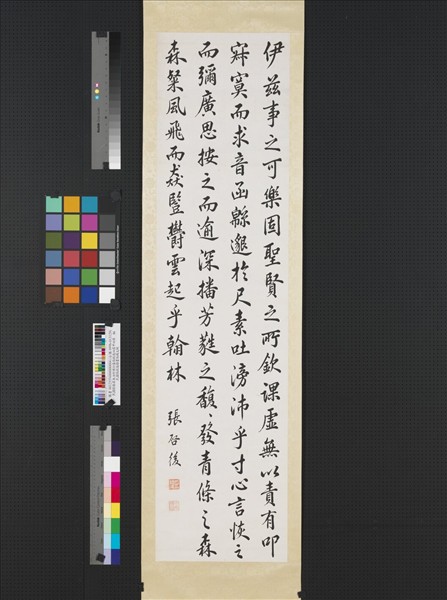 伊茲事之可樂固聖賢之所欽課虛無以責有叩
寂寞而求音函緜邈於尺素吐滂沛乎寸心言恢之
而彌廣思按之而逾深播芳蕤之馥〻發青條之森
森粲風飛而猋豎鬱雲起乎翰林
張启後